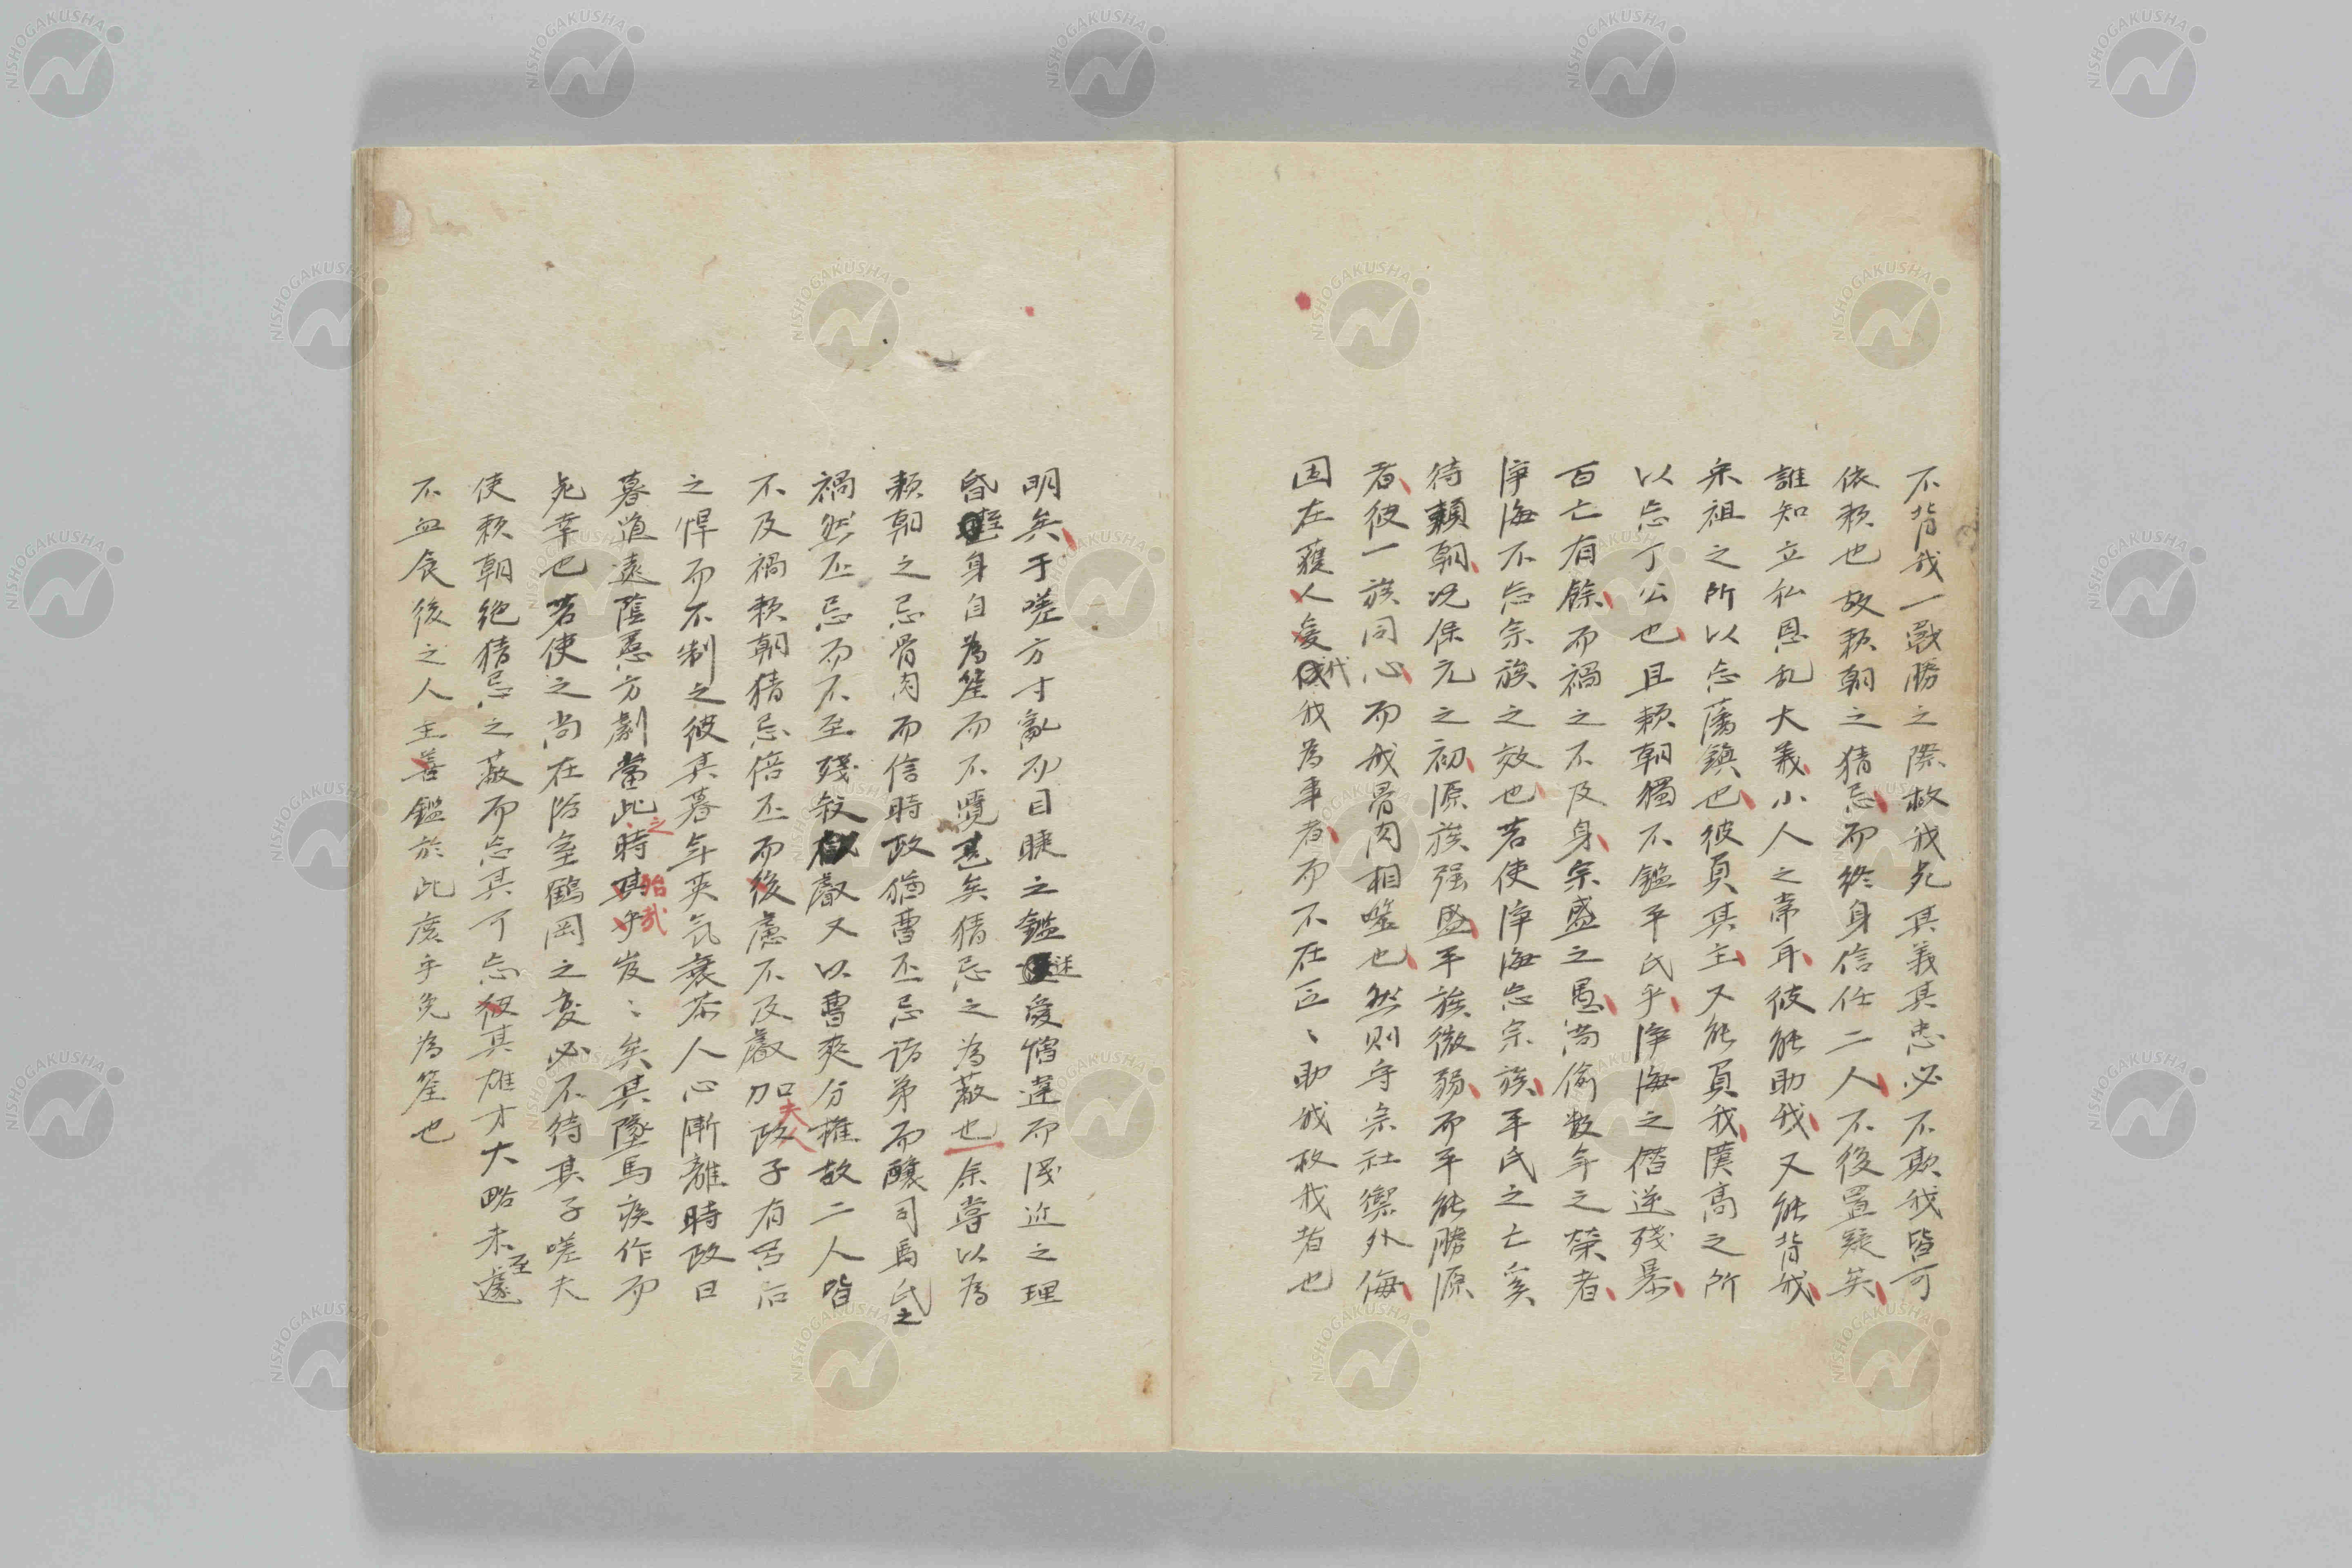 不背我一戰勝之際救我死其義其忠必不欺我皆可
依頼也故頼朝之猜忌而終身信任二人不後置疑矣
誰知立私恩乱大義小人之常耳彼能助我又能背我
宋祖之所以忘藩鎮也彼負其主又能負我漢高之所
以忘丁公也且頼朝獨不鑑平氏乎淨海之僭逆殘暴
百亡有餘而禍之不及身宗盛之愚尚偷数年之榮者
淨海不忘宗族之效也若使淨海忘宗族平氏之亡奚
待頼朝况保元之初源族强盛平族微弱而平能勝源
者彼一族同心而我骨肉相噬也然則守宗社禦外侮
固在獲人爰代我為事者而不在区〻助我救我者也
明矣于嗟方寸亂而目睫之鑑迷愛憎違而浅近之理
昏躯身自為筌而不覺甚矣猜忌之為蔽也余嘗以為
頼朝之忌骨肉而信時政猶曹丕忌諸弟而釀司馬氏之
禍然丕忌而不至殘殺叡又以曹爽分権故二人皆
不及禍頼朝猜忌倍丕而後慮不及叡加夫人政子有呂后
之悍而不制之彼其暮年英気衰苶人心漸離時政日
暮道遠蔭惡方劇當此之時其乎殆哉岌〻矣其墜馬疾作而
死幸也若使之尚在防室鶴岡之変必不待其子嗟夫
使頼朝絶猜忌之蔽而忘其可忘彼其雄才大略未至遽
不血食後之人主善鑑於此庶乎免為筌也
NISHOGAKUSHA